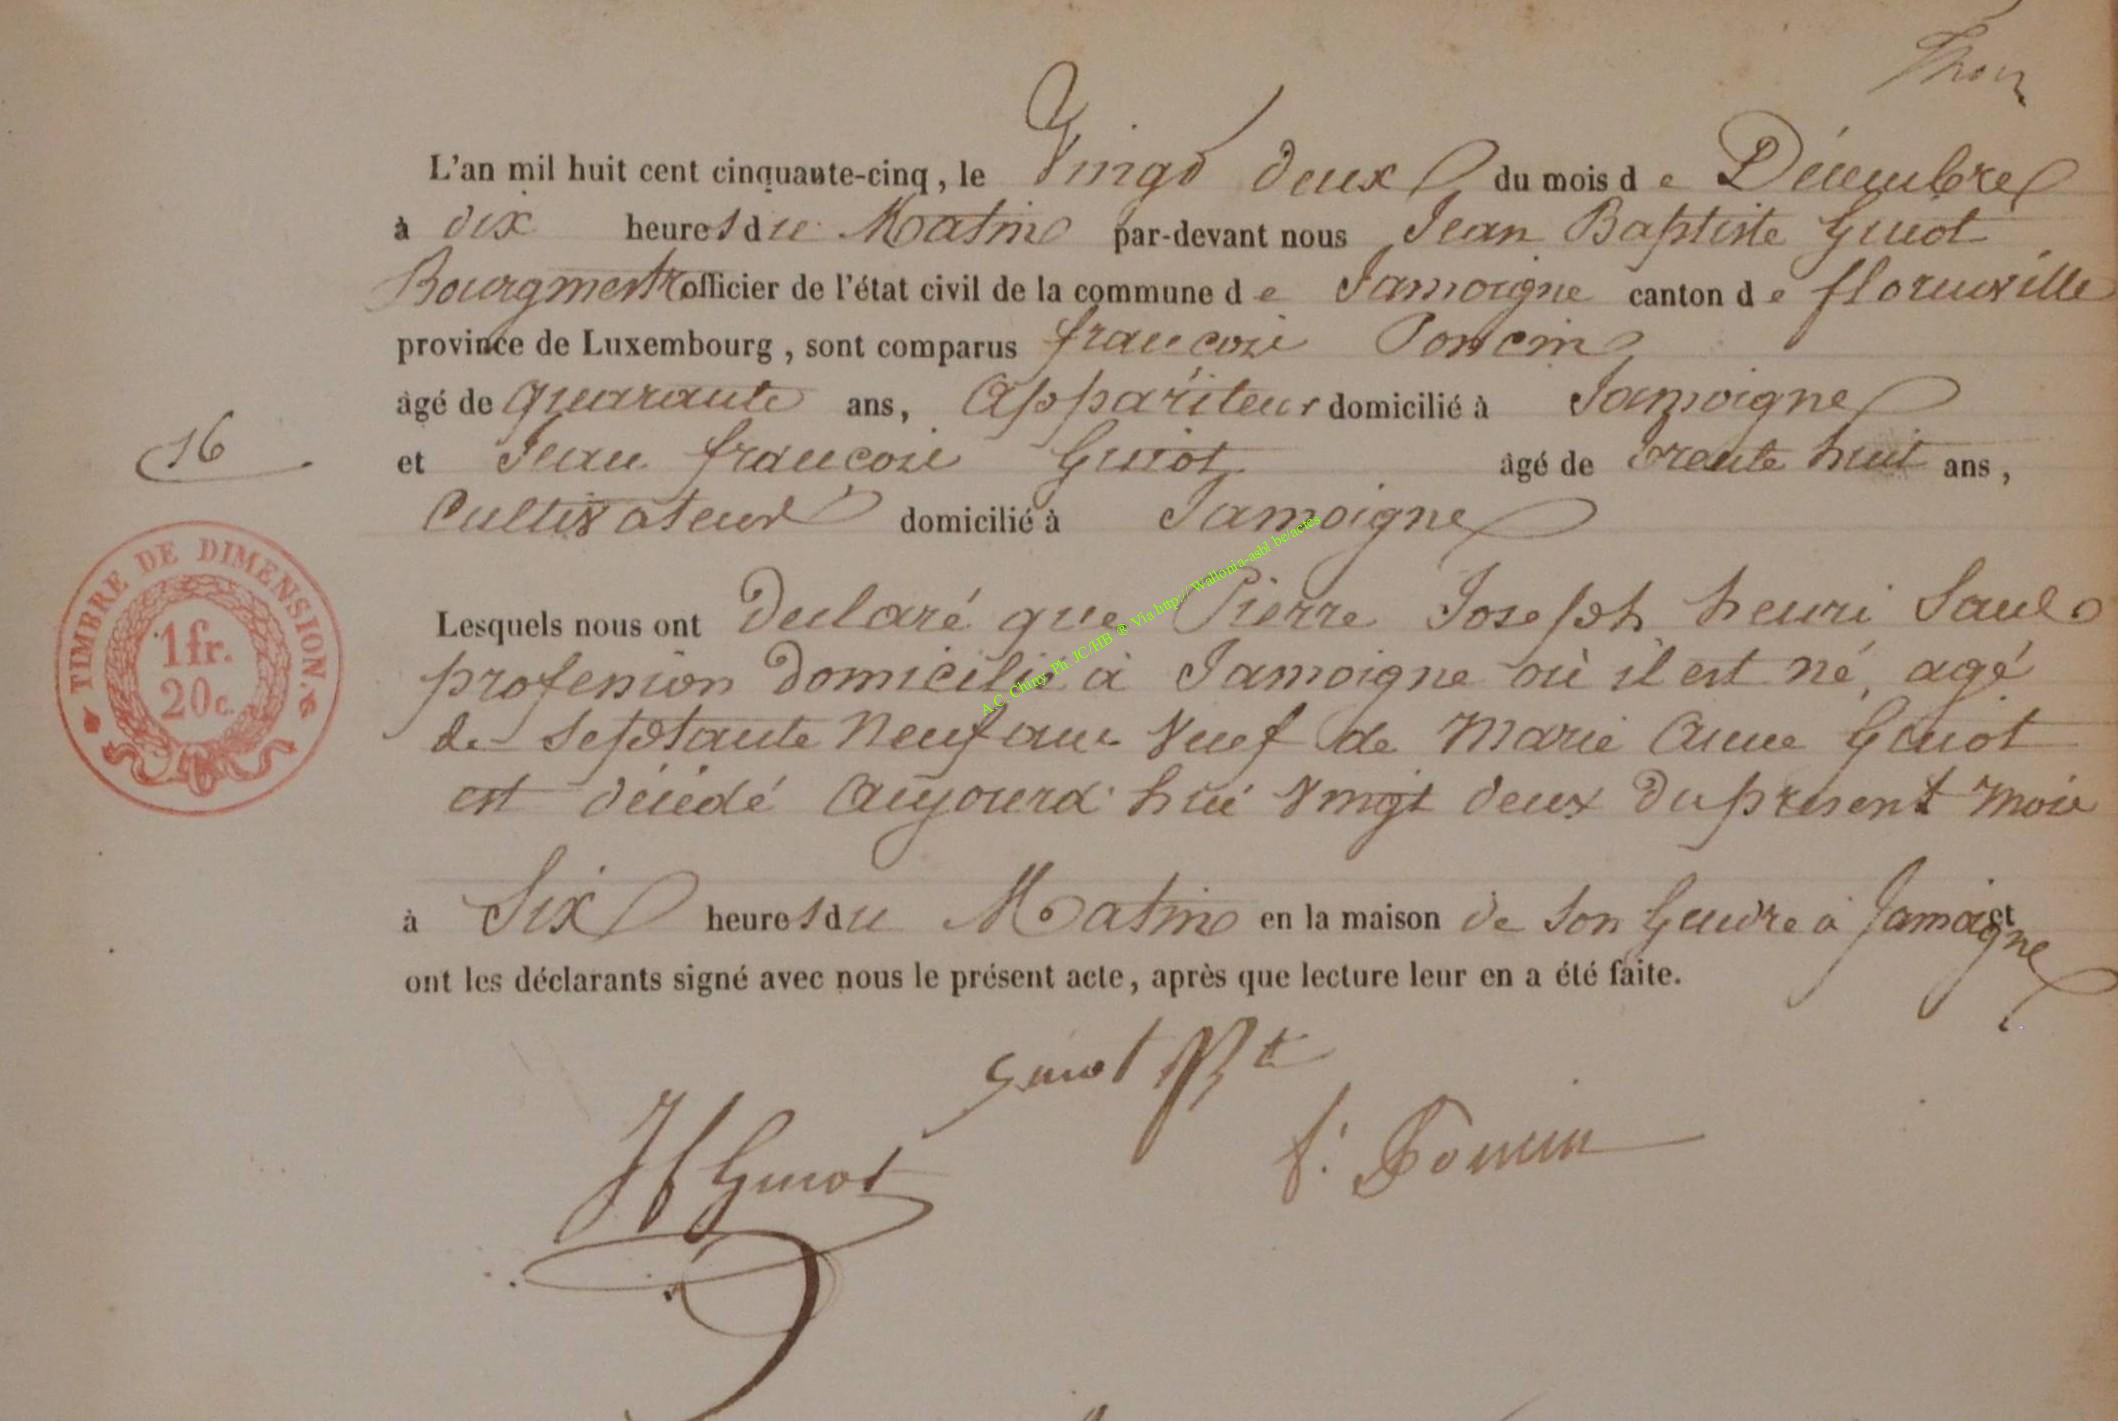 L'an mil huit cent cinquante-cinq, le Vingt deux du mois de Décembre
à dix heures du Matin par-devant nous Jean Baptiste Guiot
Bourgmestre officier de l'état civil de la commune de Jamoigne canton de florenville
province de Luxembourg, sont comparus françois Poncin
âgé de quarante ans, Appariteur domicilié à Jamoigne
16
et Jean françois Guiot âgé de trente huit ans,
Cultivateur domicilié à Jamoigne
TIMBRE DE DIMENSION.
1 fr.
20 c.
A.C. Chiny Ph. JC/HB @ Via http://Wallonia-asbl.be/actes
Lesquels nous ont declaré que Pierre Joseph henri Sans
profession domicilié à Jamoigne où il est né, agé
de septante neuf ans Veuf de Marie Anne Guiot
est décédé aujourd'hui Vingt deux du présent mois
à Six heures du Matin en la maison de son Gendre à Jamoigne et
ont les déclarants signé avec nous le présent acte, après que lecture leur en a été faite.
Guiot Bt
JF Guiot
f. Poncin